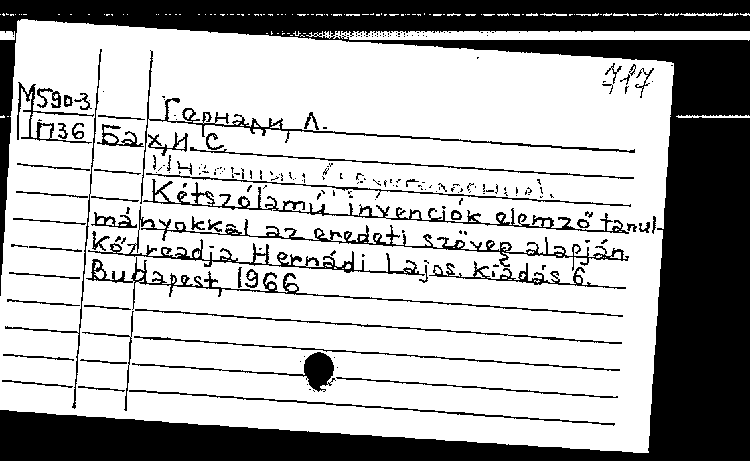 717
М590-3
П36
Гернади, Л.
Бах, И. С.
Инвенции (двухголосные).
Kétszólamú invenciók elemző tanul-
mányokkal az eredeti szöveg alapján.
Közreadja Hernádi Lajos. kiadás 6.
Budapest, 1966